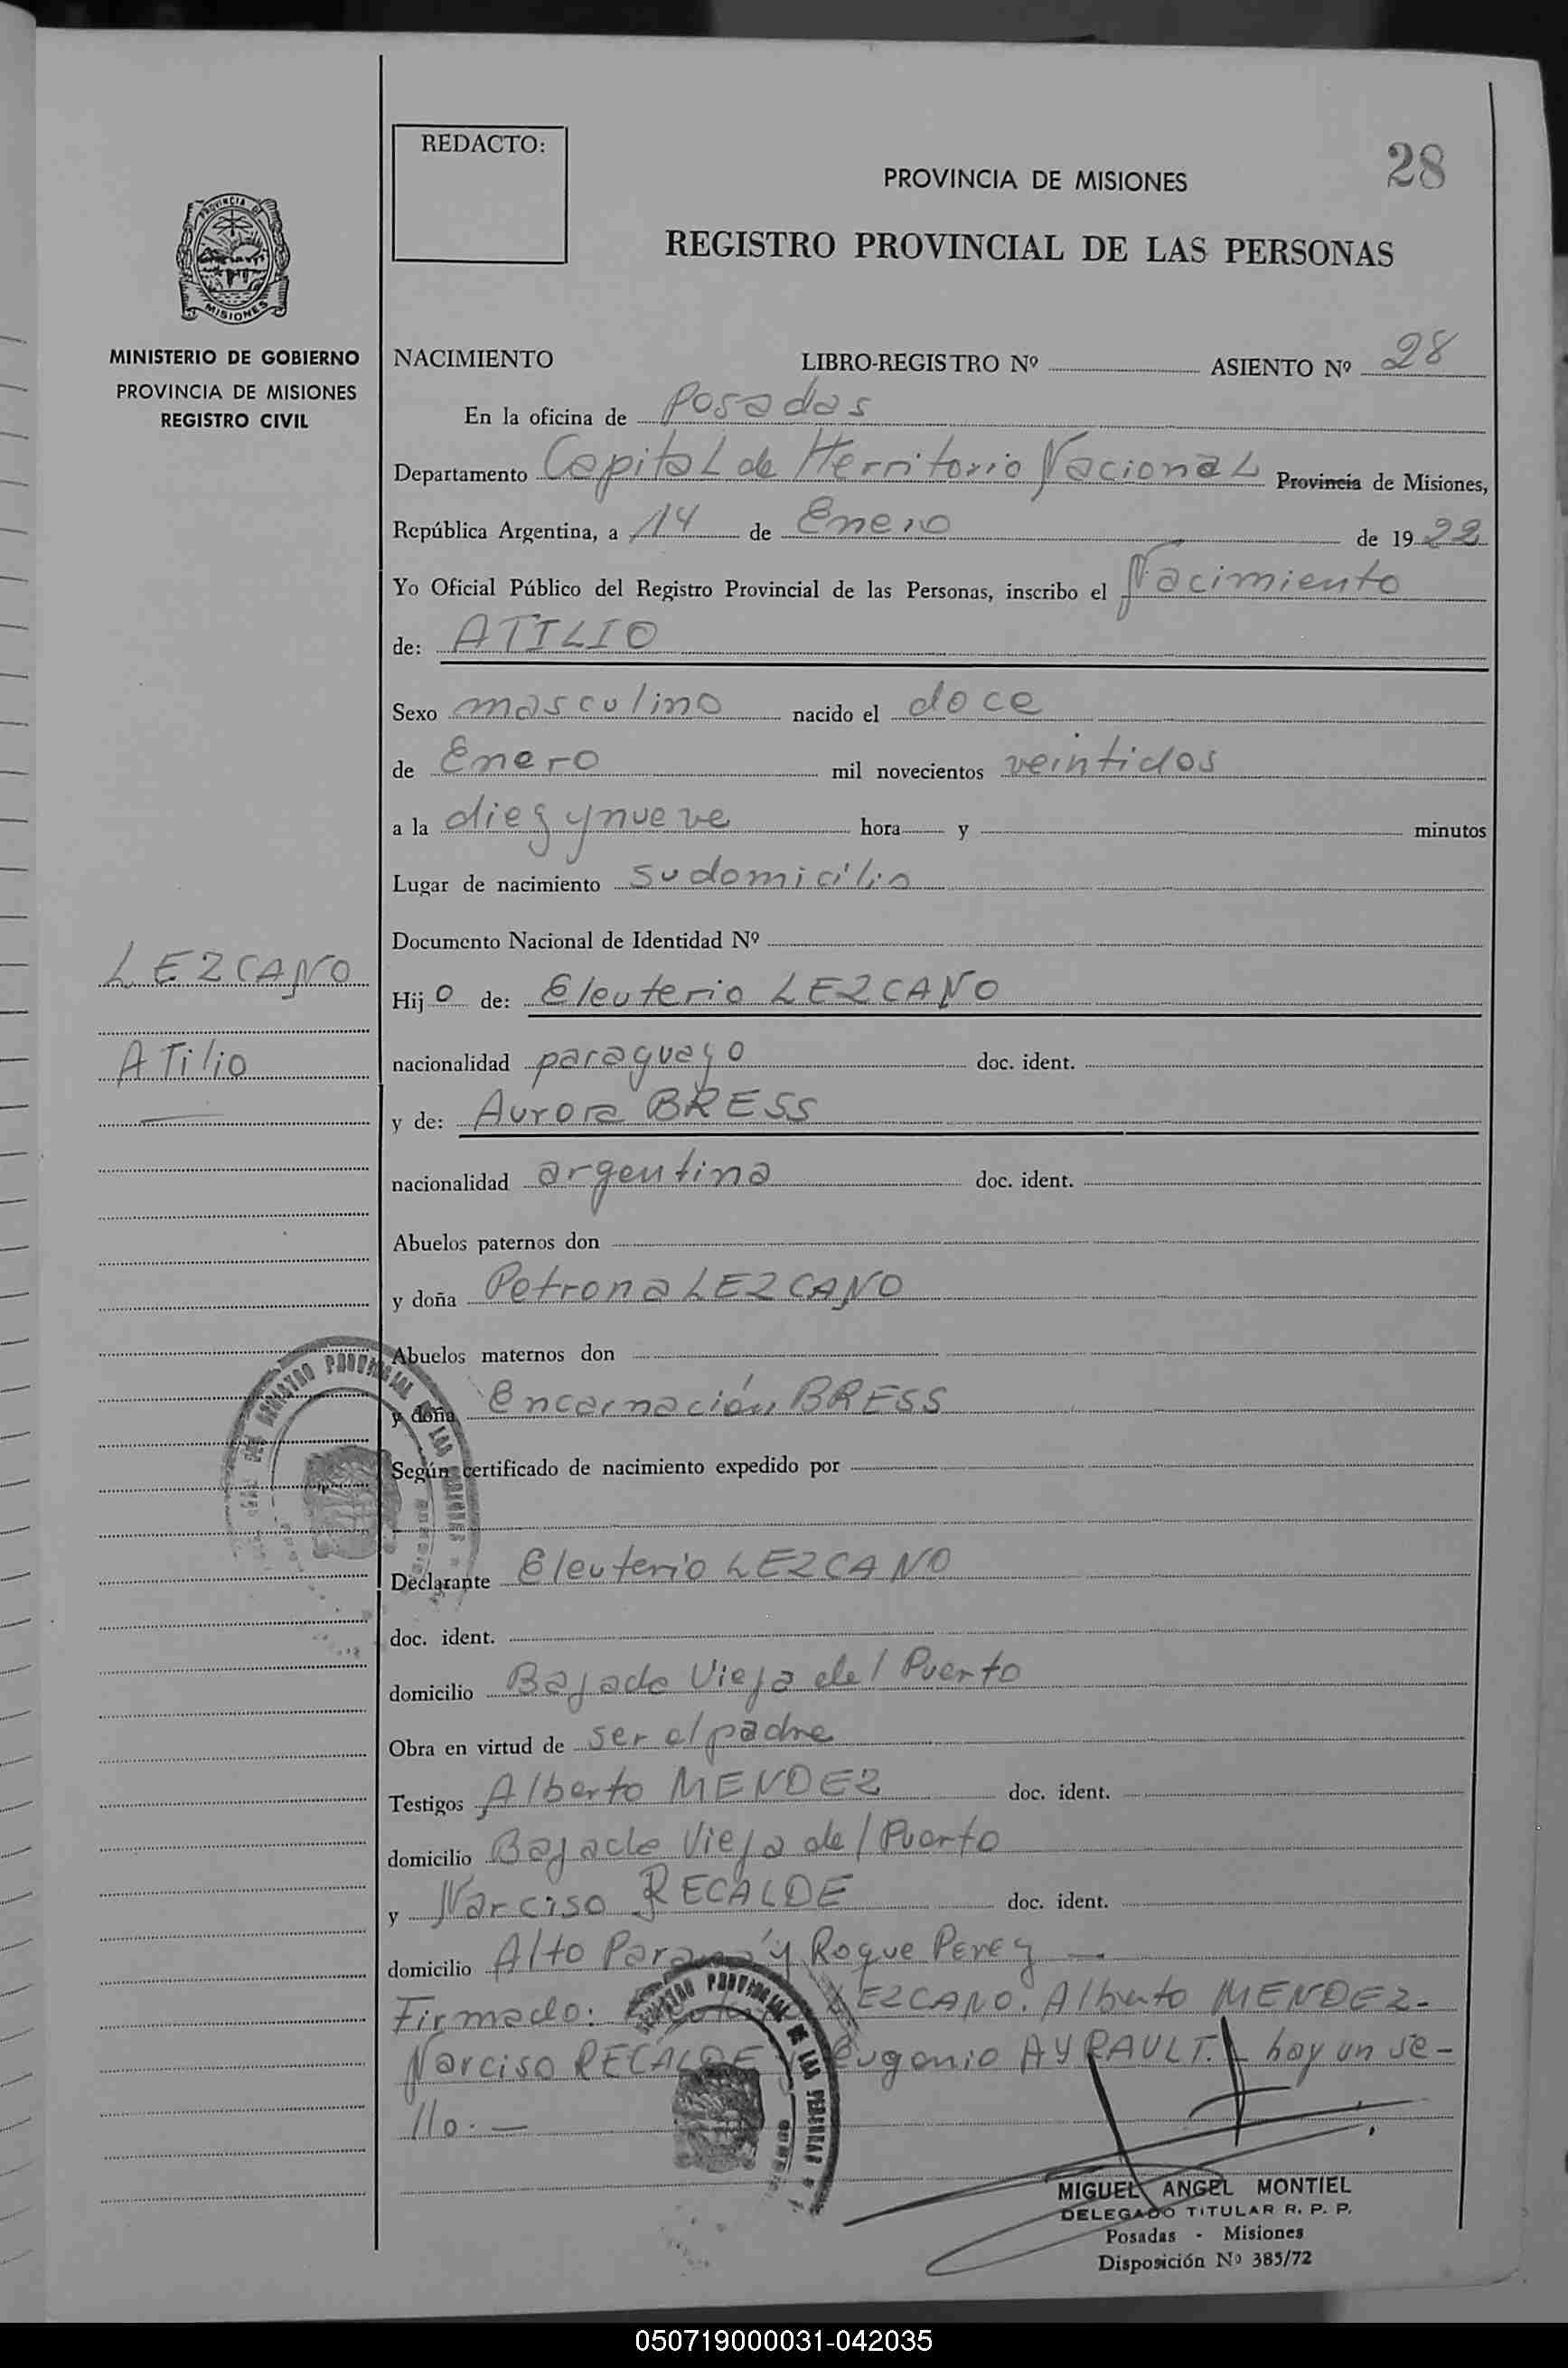 REDACTO:
28
PROVINCIA DE MISIONES
REGISTRO PROVINCIAL DE LAS PERSONAS
PROVINCIA DE
MISIONES
MINISTERIO DE GOBIERNO
PROVINCIA DE MISIONES
REGISTRO CIVIL
NACIMIENTO LIBRO-REGISTRO Nº ASIENTO Nº 28
En la oficina de Posadas
Departamento Capital de Territorio Nacional Provincia de Misiones,
República Argentina, a 14 de Enero de 1922
Yo Oficial Público del Registro Provincial de las Personas, inscribo el Nacimiento
de: ATILIO
Sexo masculino nacido el doce
de Enero mil novecientos veintidos
a la diez y nueve hora y minutos
Lugar de nacimiento su domicilio
Documento Nacional de Identidad Nº
LEZCANO
Hijo de: Eleuterio LEZCANO
Atilio
nacionalidad paraguayo doc. ident.
y de: Aurora BRESS
nacionalidad argentina doc. ident.
Abuelos paternos don
y doña Petrona LEZCANO
Abuelos maternos don
y doña Encarnación BRESS
Según certificado de nacimiento expedido por
Declarante Eleuterio LEZCANO
doc. ident.
domicilio Bajada Vieja del Puerto
Obra en virtud de ser el padre
Testigos Alberto MENDEZ doc. ident.
domicilio Bajada Vieja del Puerto
y Narciso RECALDE doc. ident.
domicilio Alto Paraná y Roque Perez —
Firmado: LEZCANO. Alberto MENDEZ-
Narciso RECALDE Eugenio AYRAULT. hay un se-
llo. —
REGISTRO PROVINCIAL DE LAS PERSONAS
MIGUEL ANGEL MONTIEL
DELEGADO TITULAR R. P. P.
Posadas - Misiones
Disposición Nº 385/72
050719000031-042035